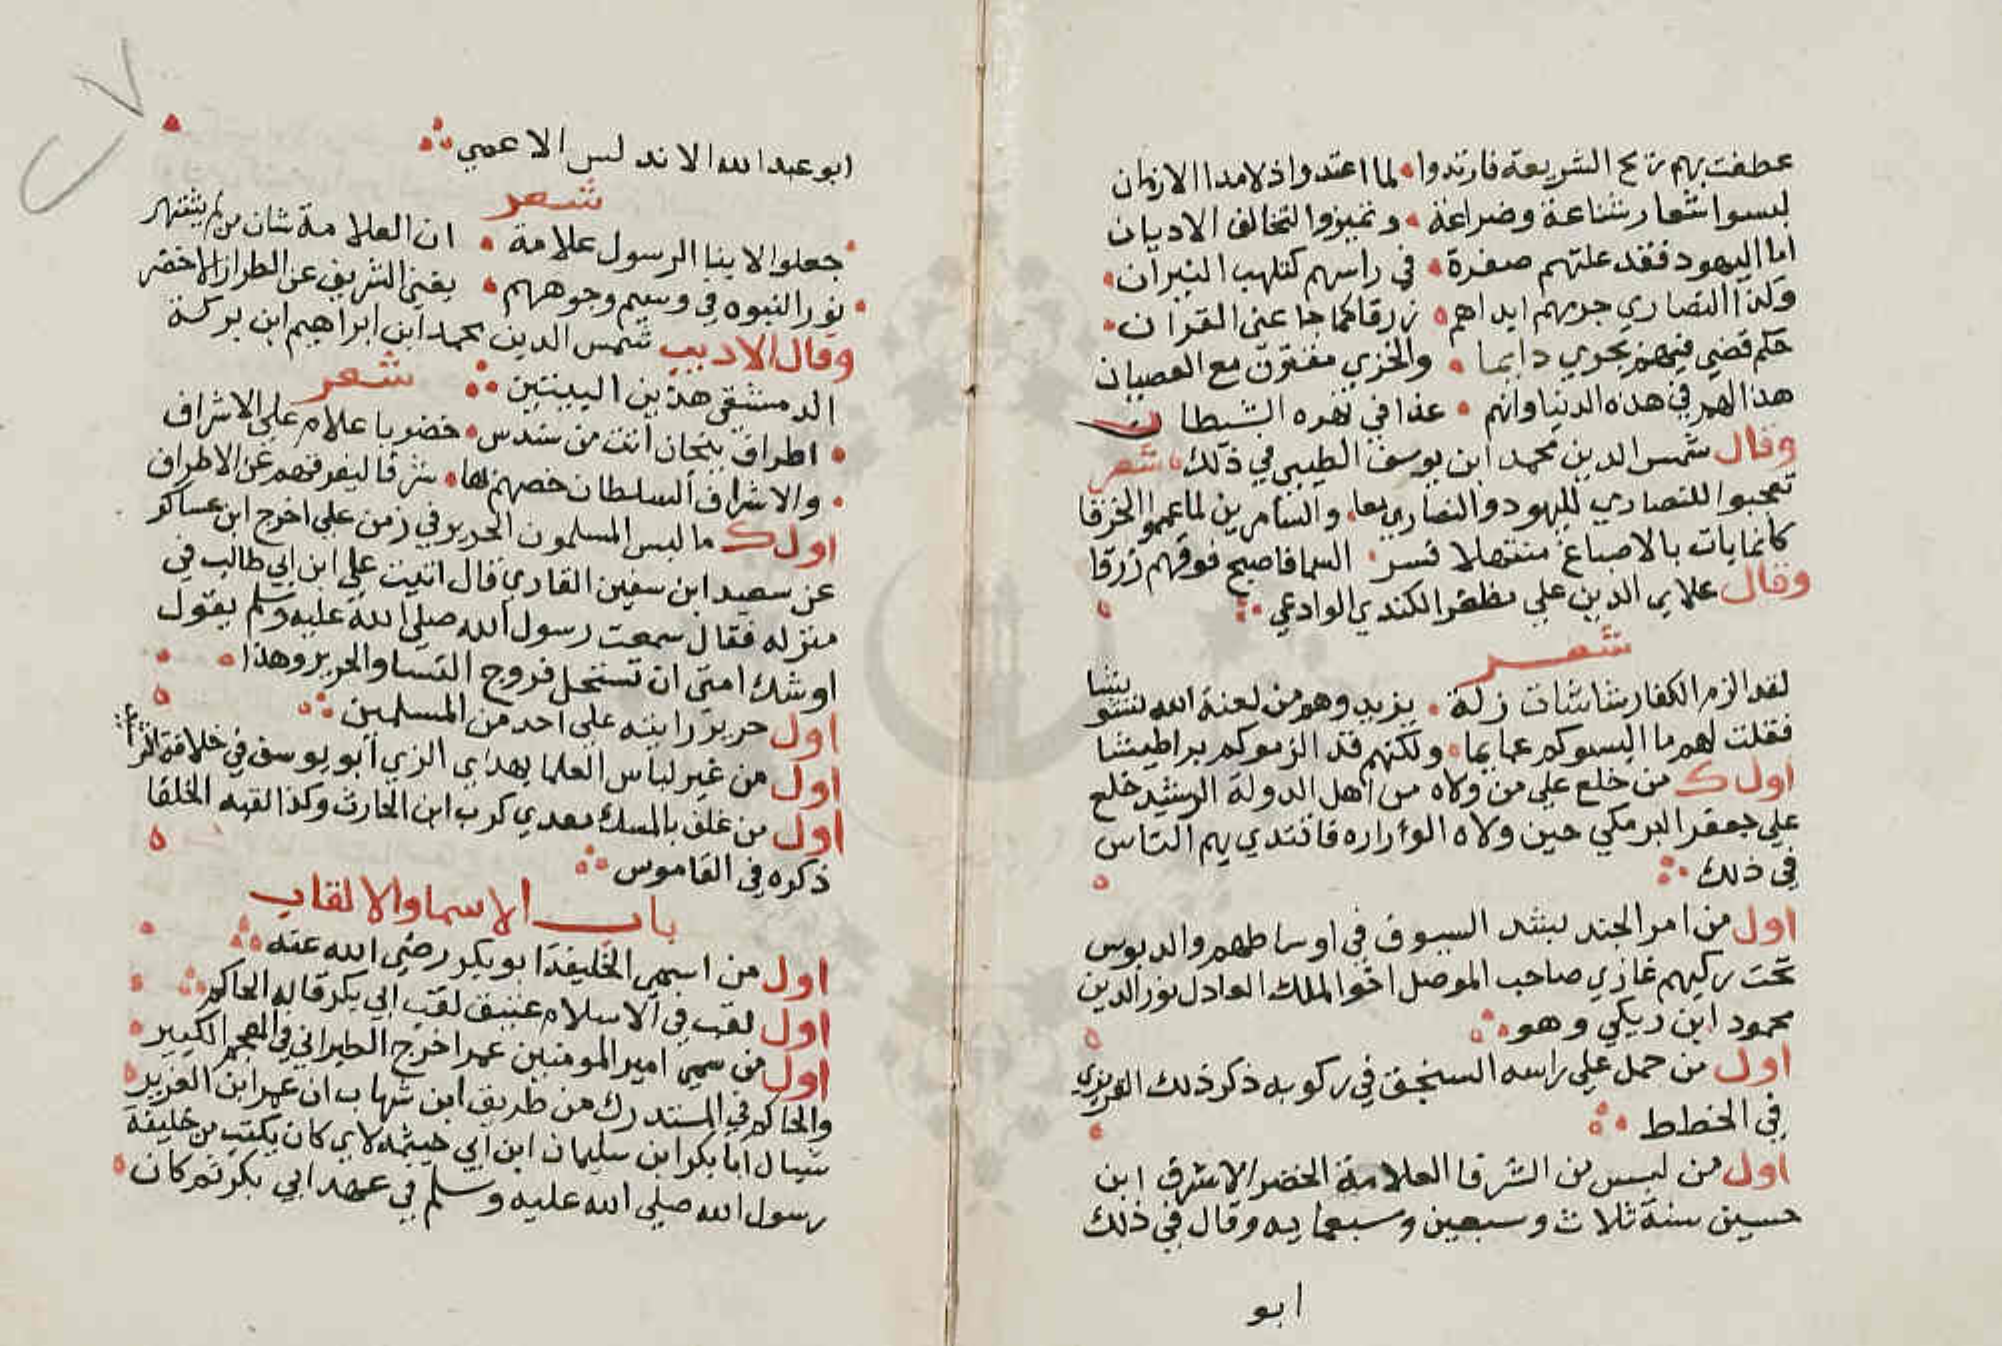 عطفت بهم ريح الشريعة فارتدوا لما اعتدوا ذلا مدا الازمان
لبسوا شعار شناعة وضراعة وتميزوا لتخالف الاديان
اما اليهود فقد علتهم صفرة في راسهم كتلهب النيران
وكذا النصاري جرمهم ابداهم زرقا كما جا عني القران
حكم قضي فيهم يجري دايما والخزي مقترن مع العصيان
هذا لهم في هذه الدنيا وانهم غدا في الشيطان
وقال شمس الدين محمد ابن يوسف الطيبي في ذلك شعر
تعجبوا للنصاري لليهود والنصاري معا والسامرين لما عمموا الخرقا
كانما بات بالاصباغ منتهلا نسر السما فاصبح فوقهم زرقا
وقال علاي الدين علي مظفر الكندي الوادعي
شعر
لقد الزم الكفار شاشات زلة يزيد وهم من لعنة الله
فقلت لهم ما البسوكم عمايما ولكنهم قد الزموكم براطيشا
اول من خلع علي من ولاه من اهل الدولة الرشيد خلع
علي جعفر البرمكي حين ولاه الوزاره فاقتدي بهم الناس
في ذلك
اول من امر الجند بشد السيوف في اوساطهم والدبوس
تحت ركبهم غازي صاحب الموصل اخو الملك العادل نور الدين
محمود ابن زنكي وهو
اول من حمل علي راسه السنجق في ركوبه ذكر ذلك المقريزي
في الخطط
اول من لبس من الشرفا العلامة الخضرا الاشرف ابن
حسين سنة ثلاث وسبعين وسبعمايه وقال في ذلك
ابو
٢٧
ابو عبد الله الاندلس الاعمي
شعر
جعلوا لابنا الرسول علامة ان العلامة شان من لم يشتهر
نور النبوه في وسيم وجوههم يغني الشريف عن الطراز الاخضر
وقال الاديب شمس الدين محمد ابن ابراهيم ابن بركة
الدمشقي هذين البيتين شعر
اطراف تيجان اتت من سندس خضر باعلام علي الاشراف
والاشرف السلطان خصهم بها شرفا ليفرقهم عن الاطراف
اول ما لبس المسلمون الحرير في زمن علي اخرج ابن عساكر
عن سعيد ابن سفين القاري قال اتيت علي ابن ابي طالب في
منزله فقال سمعت رسول الله صلي الله عليه وسلم يقول
اوشك امتي ان تستحل فروج النسا والحرير وهذا
اول حرير رايته علي احد من المسلمين
اول من غير لباس العلما بهداي الزي ابو يوسف في خلافة
اول من غلف بالمسك معدي كرب ابن الحارث وكذا لقبه الخلفا
ذكره في القاموس
باب الاسما والالقاب
اول من اسمي الخليفة ابو بكر رضي الله عنه
اول لقب في الاسلام عتيق لقب ابي بكر قاله الحاكم
اول من سمي امير المومنين عمر اخرج الطبراني في المعجم الكبير
والحاكم في المستدرك من طريق ابن شهاب ان عمر ابن العزيز
سال ابا بكر ابن سليمان ابن ابي خيثمه لاي كان يكتب من خليفة
رسول الله صلي الله عليه وسلم في عهد ابي بكر ثم كان